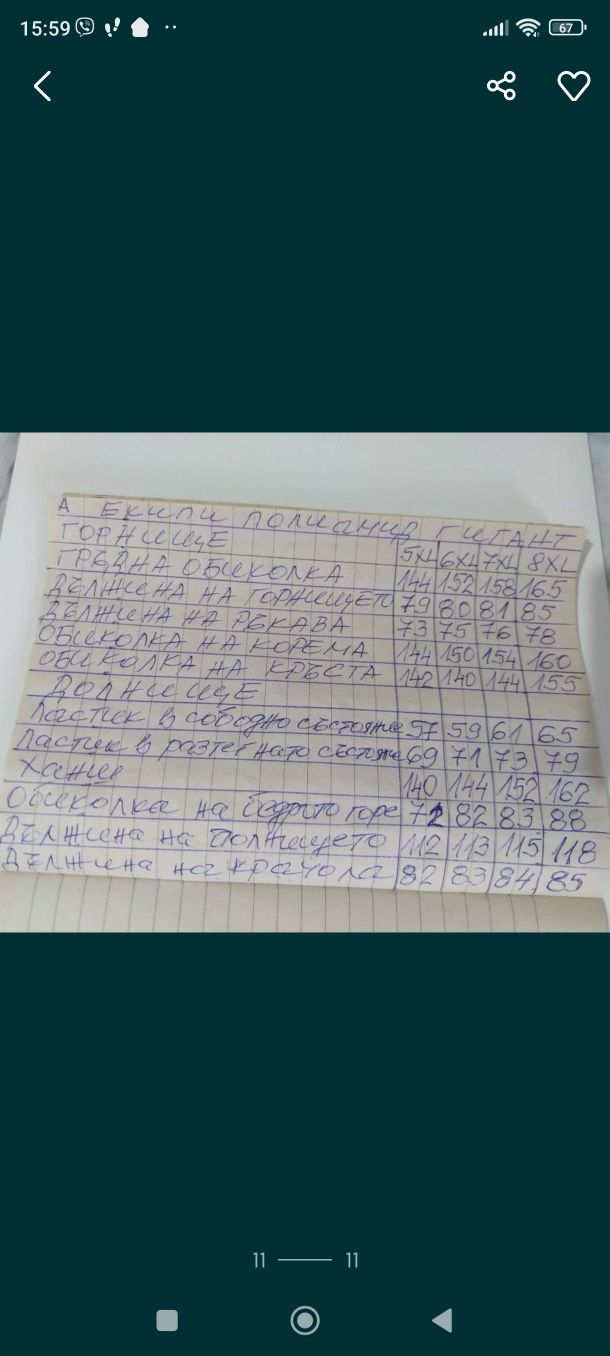 15:59
67
А ЕКИПИ ПОЛИАМИД ГИГАНТ
ГОРНИЩЕ 5XL 6XL 7XL 8XL
ГРЪДНА ОБИКОЛКА 144 152 158 165
ДЪЛЖИНА НА ГОРНИЩЕТО 79 80 81 85
ДЪЛЖИНА НА РЪКАВА 73 75 76 78
ОБИКОЛКА НА КОРЕМА 144 150 154 160
ОБИКОЛКА НА КРЪСТА 142 140 144 155
ДОЛНИЩЕ
Ластик в сободно състояние 57 59 61 65
Ластик в разтегнато състояние 69 71 73 79
Ханш 140 144 152 162
Обиколка на бедрото горе 72 82 83 88
Дължина на долнището 112 113 115 118
Дължина на крачола 82 83 84 85
11 11